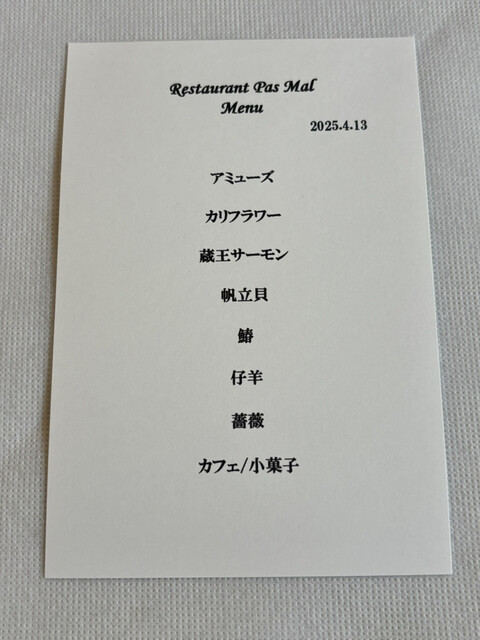 Restaurant Pas Mal
Menu
2025.4.13
アミューズ
カリフラワー
蔵王サーモン
帆立貝
鰆
仔羊
薔薇
カフェ/小菓子